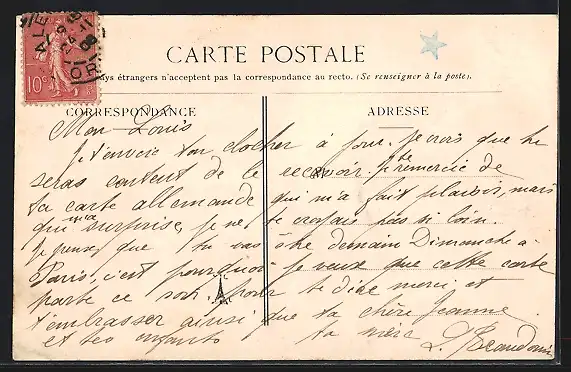 CARTE POSTALE
pays étrangers n'acceptent pas la correspondance au recto. (Se renseigner à la poste).
CORRESPONDANCE
ADRESSE
10c
Mon Louis
Je t'envoie ton clocher à jour. Je crois que tu
seras content de le recevoir. Je te remercie de
ta carte allemande qui m'a fait plaisir, mais
qui m'a surprise, je ne te croyais pas si loin.
Je pense que tu vas être demain Dimanche à
Paris, c'est pourquoi je veux que cette carte
parte ce soir pour te dire merci et
t'embrasser ainsi que ta chère Jeanne
et tes enfants ta mère